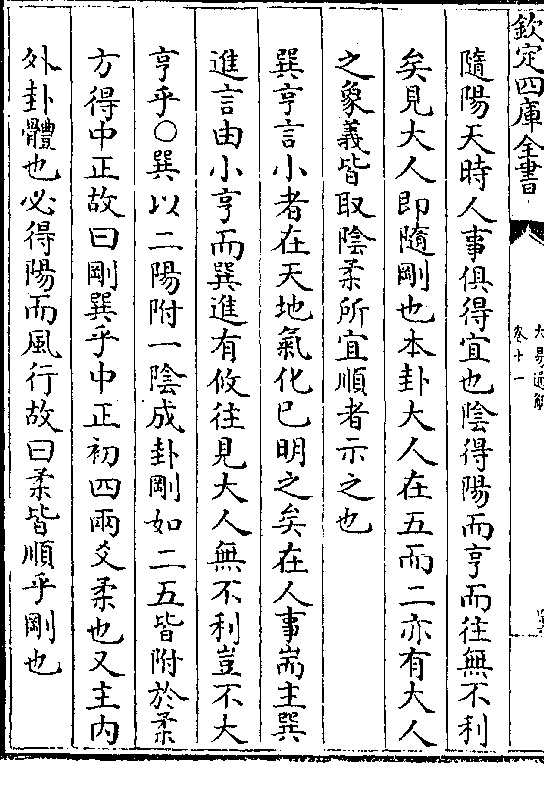 欽定四庫全書
大易通解
卷十一
隨陽天時人事俱得宜也陰得陽而亨而往無不利
矣見大人即隨剛也本卦大人在五而二亦有大人
之象義皆取陰柔所宜順者示之也
巽亨言小者在天地氣化已明之矣在人事耑主巽
進言由小亨而巽進有攸往見大人無不利豈不大
亨乎○巽以二陽附一陰成卦剛如二五皆附於柔
方得中正故曰剛巽乎中正初四兩爻柔也又主內
外卦體也必得陽而風行故曰柔皆順乎剛也